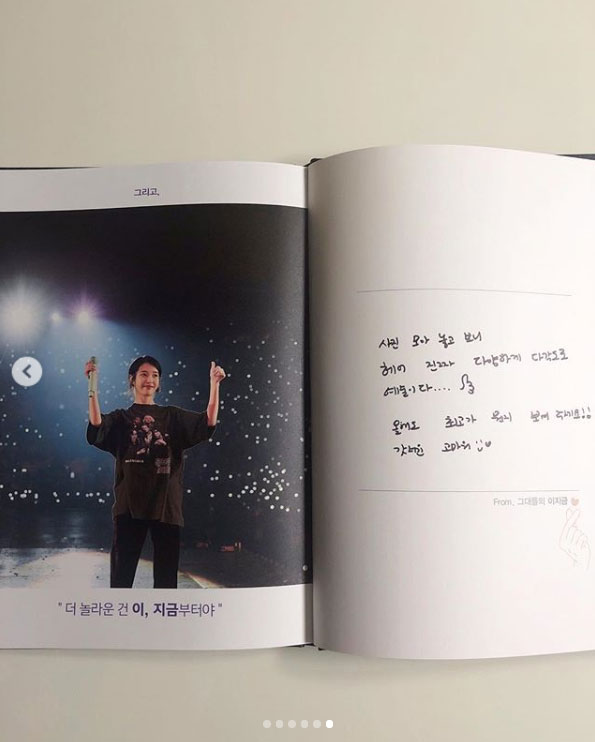 그리고,
" 더 놀라운 건 이, 지금부터야 "
사진 모아 놓고 보니
진짜 다양하게 다각도로
예술이다....
올해도 최고가 뭔지 보여
고마워
From, 그대들의 이지금